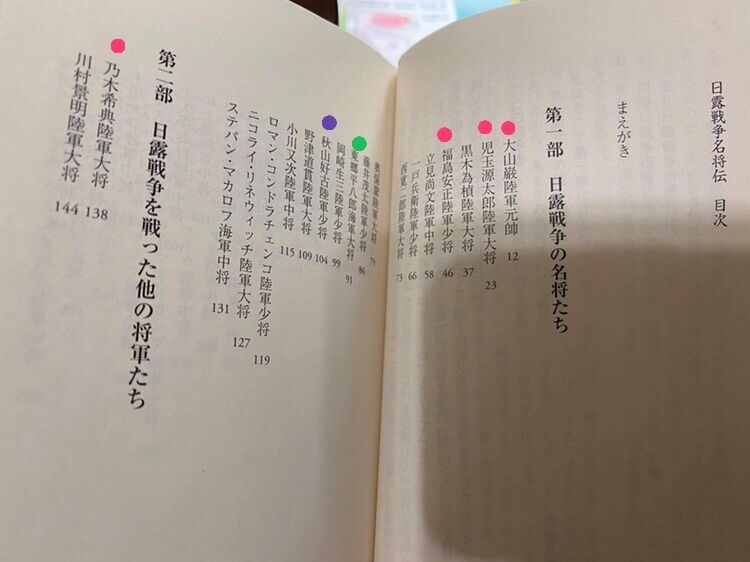 日露戦争名将伝 目次
まえがき
第一部 日露戦争の名将たち
大山巌陸軍元帥 12
児玉源太郎陸軍大将 23
黒木為楨陸軍大将 37
福島安正陸軍少将 46
立見尚文陸軍中将 58
一戸兵衛陸軍少将 66
西寛二郎陸軍大将 73
奥保鞏陸軍大将 79
藤井茂太陸軍少将 86
東郷平八郎海軍大将 91
岡崎生三陸軍少将 99
秋山好古陸軍少将 104
野津道貫陸軍大将 109
小川又次陸軍中将 115
ロマン・コンドラチェンコ陸軍少将 119
ニコライ・リネウィッチ陸軍大将 127
ステパン・マカロフ海軍中将 131
第二部 日露戦争を戦った他の将軍たち
乃木希典陸軍大将 138
川村景明陸軍大将 144